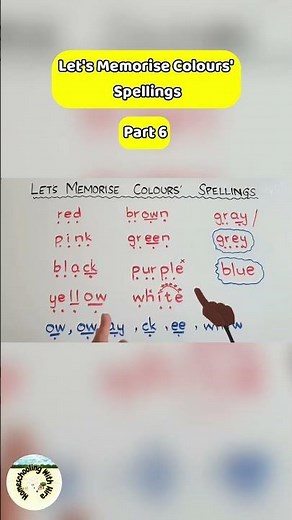 Let's Memorise Colours'
Spellings
Part 6
LET'S MEMORISE COLOURS' SPELLINGS
red brown gray /
pink green grey
black purple x blue
yellow white
ow, ow, ay, ck, ee,
Homeschooling With Hira